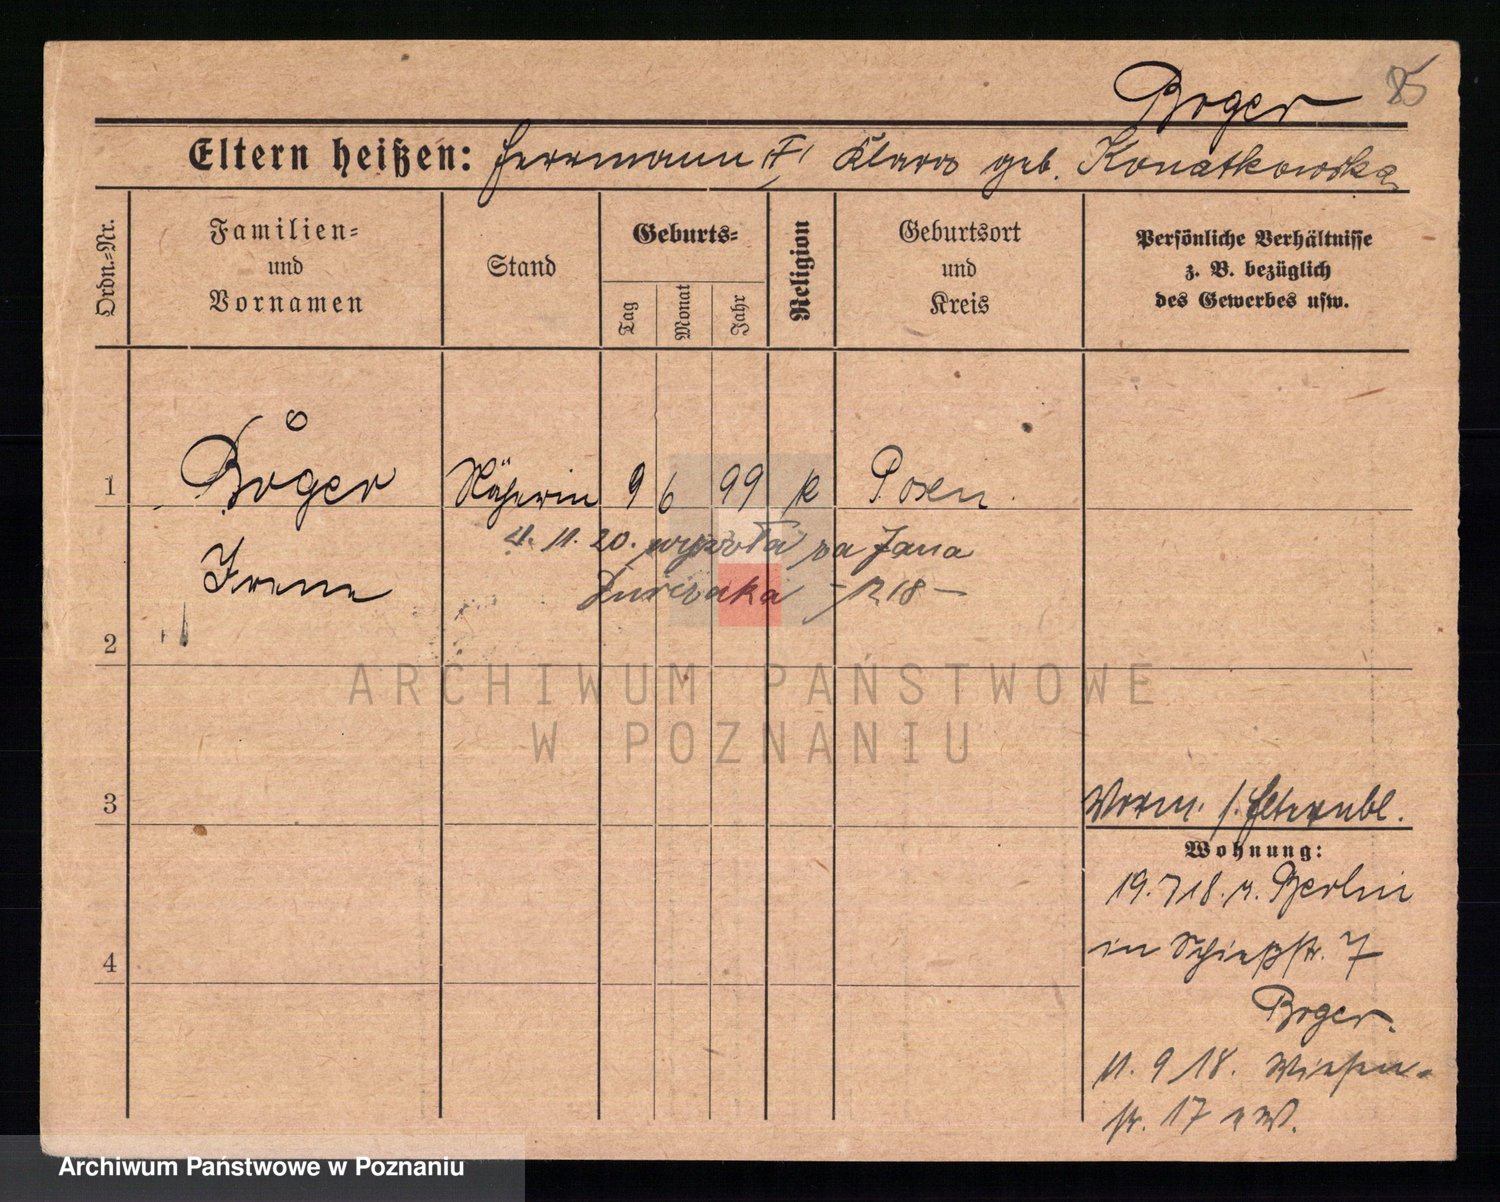 Boger 85
Eltern heißen: Herrmann (†) Klara geb. Konatkowska
Ordn.-Nr.
Familien-
und
Vornamen
Stand
Geburts-
Tag
Monat
Jahr
Religion
Geburtsort
und
Kreis
Persönliche Verhältnisse
z. B. bezüglich
des Gewerbes usw.
1 Böger Näherin 9 6 99 k Posen.
4. 11. 20. wyszła za Jana
Irene
- 18 -
2
3
Vorm. s. Elternbl.
Wohnung:
19.7 18. v. Berlin
in Schießstr. 7
4
Boger.
11. 9 18. Wiesen-
str. 17
ARCHIWUM PAŃSTWOWE
W POZNANIU
Archiwum Państwowe w Poznaniu